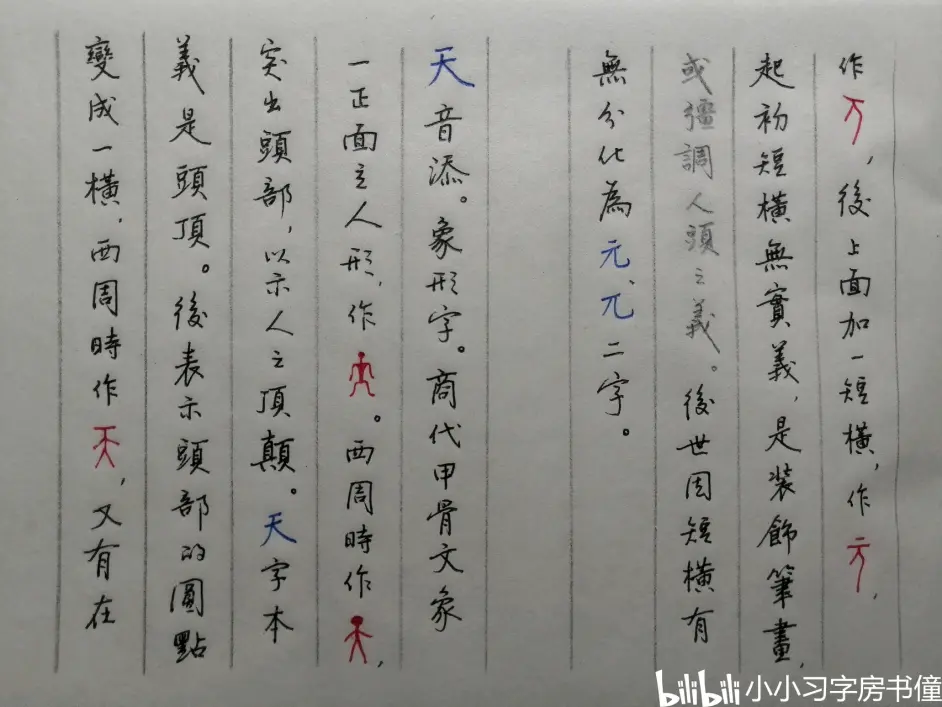 作，後上面加一短橫，作，
起初短橫無實義，是装飾筆畫，
或彊調人頭之義。後世因短橫有
無分化為元、兀二字。
天音添。象形字。商代甲骨文象
一正面之人形，作。西周時作，
突出頭部，以示人之頂顛。天字本
義是頭頂。後表示頭部的圓點
變成一橫，西周時作，又有在
bilibili 小小习字房书僮